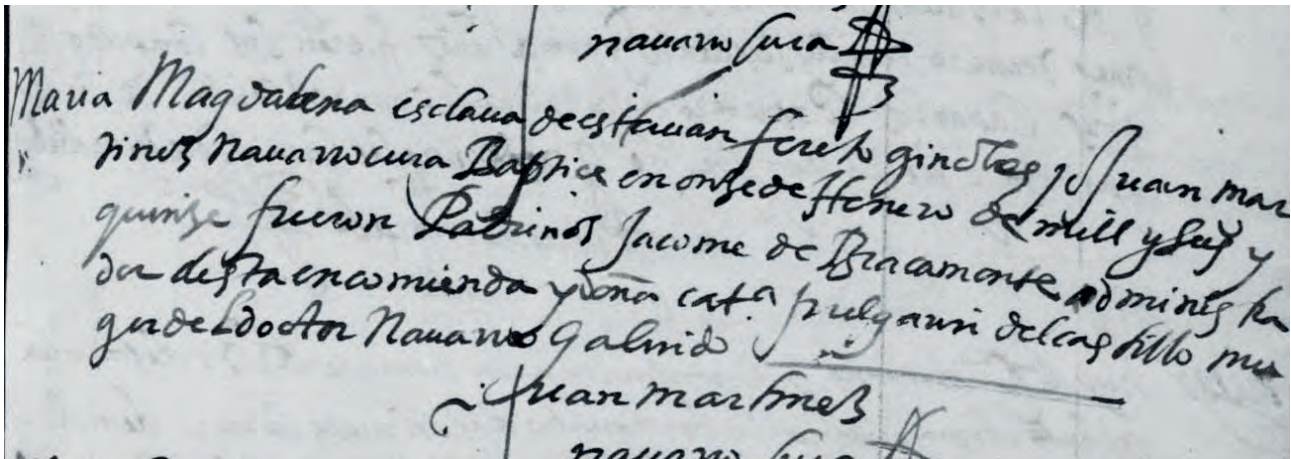 nauarro Cura
Maria Magdalena esclaua de esteuan ginobes yo Juan mar
tines nauarro cura Baptice en onse de Henero de mill y seisº y
quinse fueron Padrinos Jacome de Bracamonte adminis tra
dor desta encomienda y doña catª pulgarin del castillo mu
ger del doctor Nauarro Galindo
Juan martines
nauarro Cura